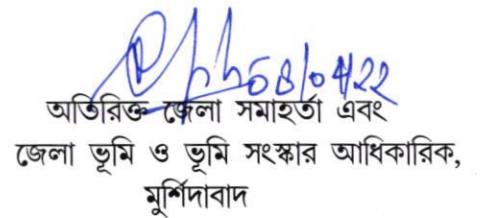 08/04/22
অতিরিক্ত জেলা সমাহর্তা এবং
জেলা ভূমি ও ভূমি সংস্কার আধিকারিক,
মুর্শিদাবাদ